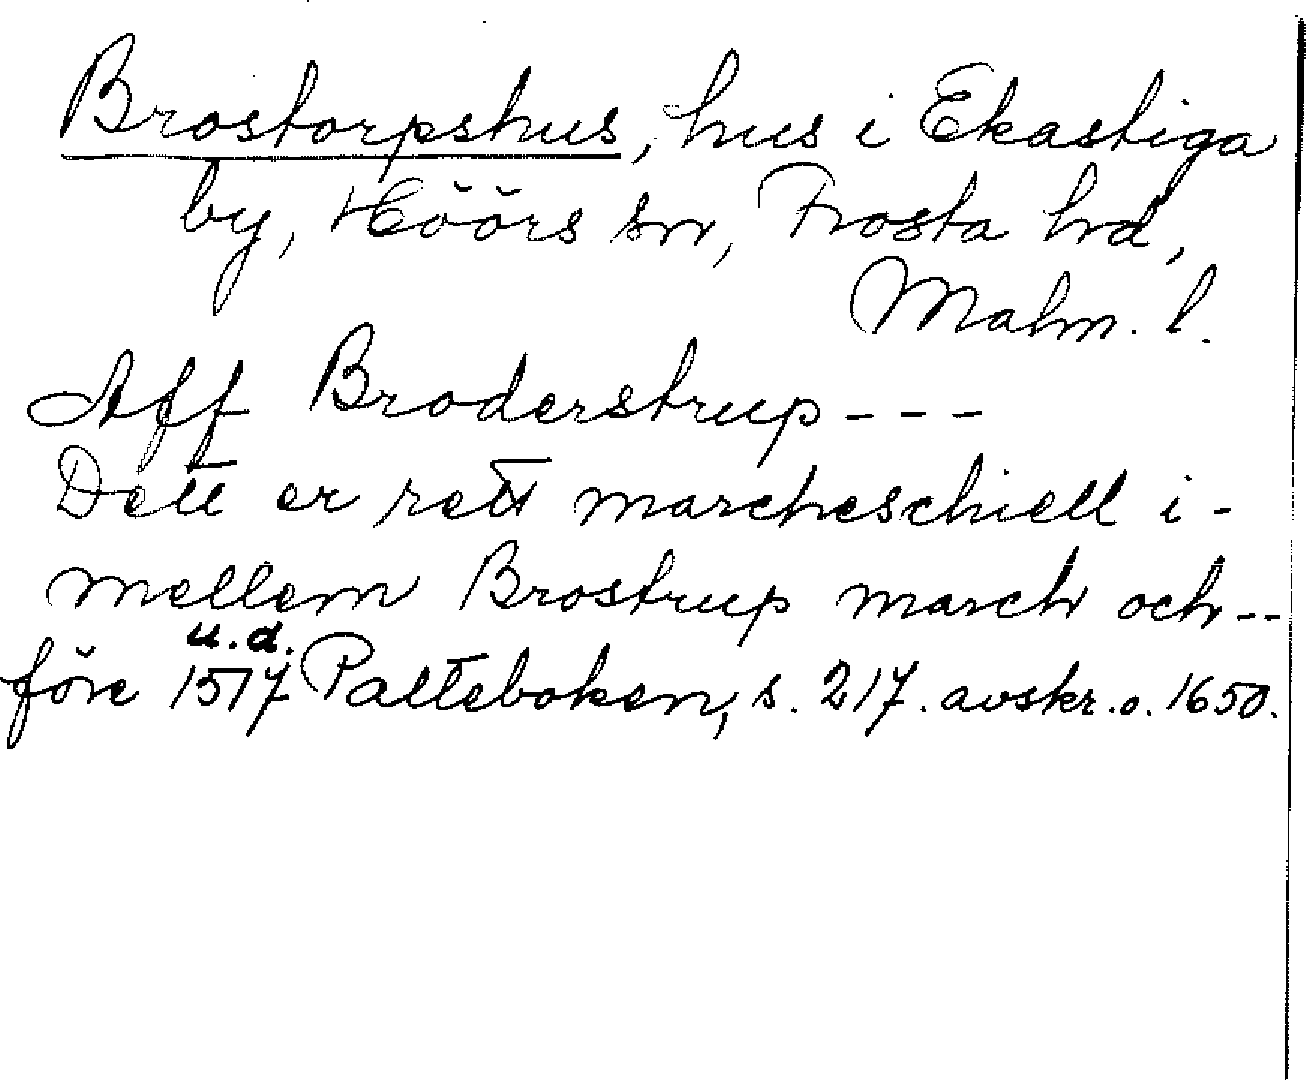 Brostorpshus, hus i Ekastiga
by, Höörs sn, Frosta hd,
Malm. l.
Aff Broderstrup - - -
Dett er rett marcheschiell i-
mellem Brostrup march och --
u. d.
före 1517 Palteboken, s. 217. avskr. o. 1650.